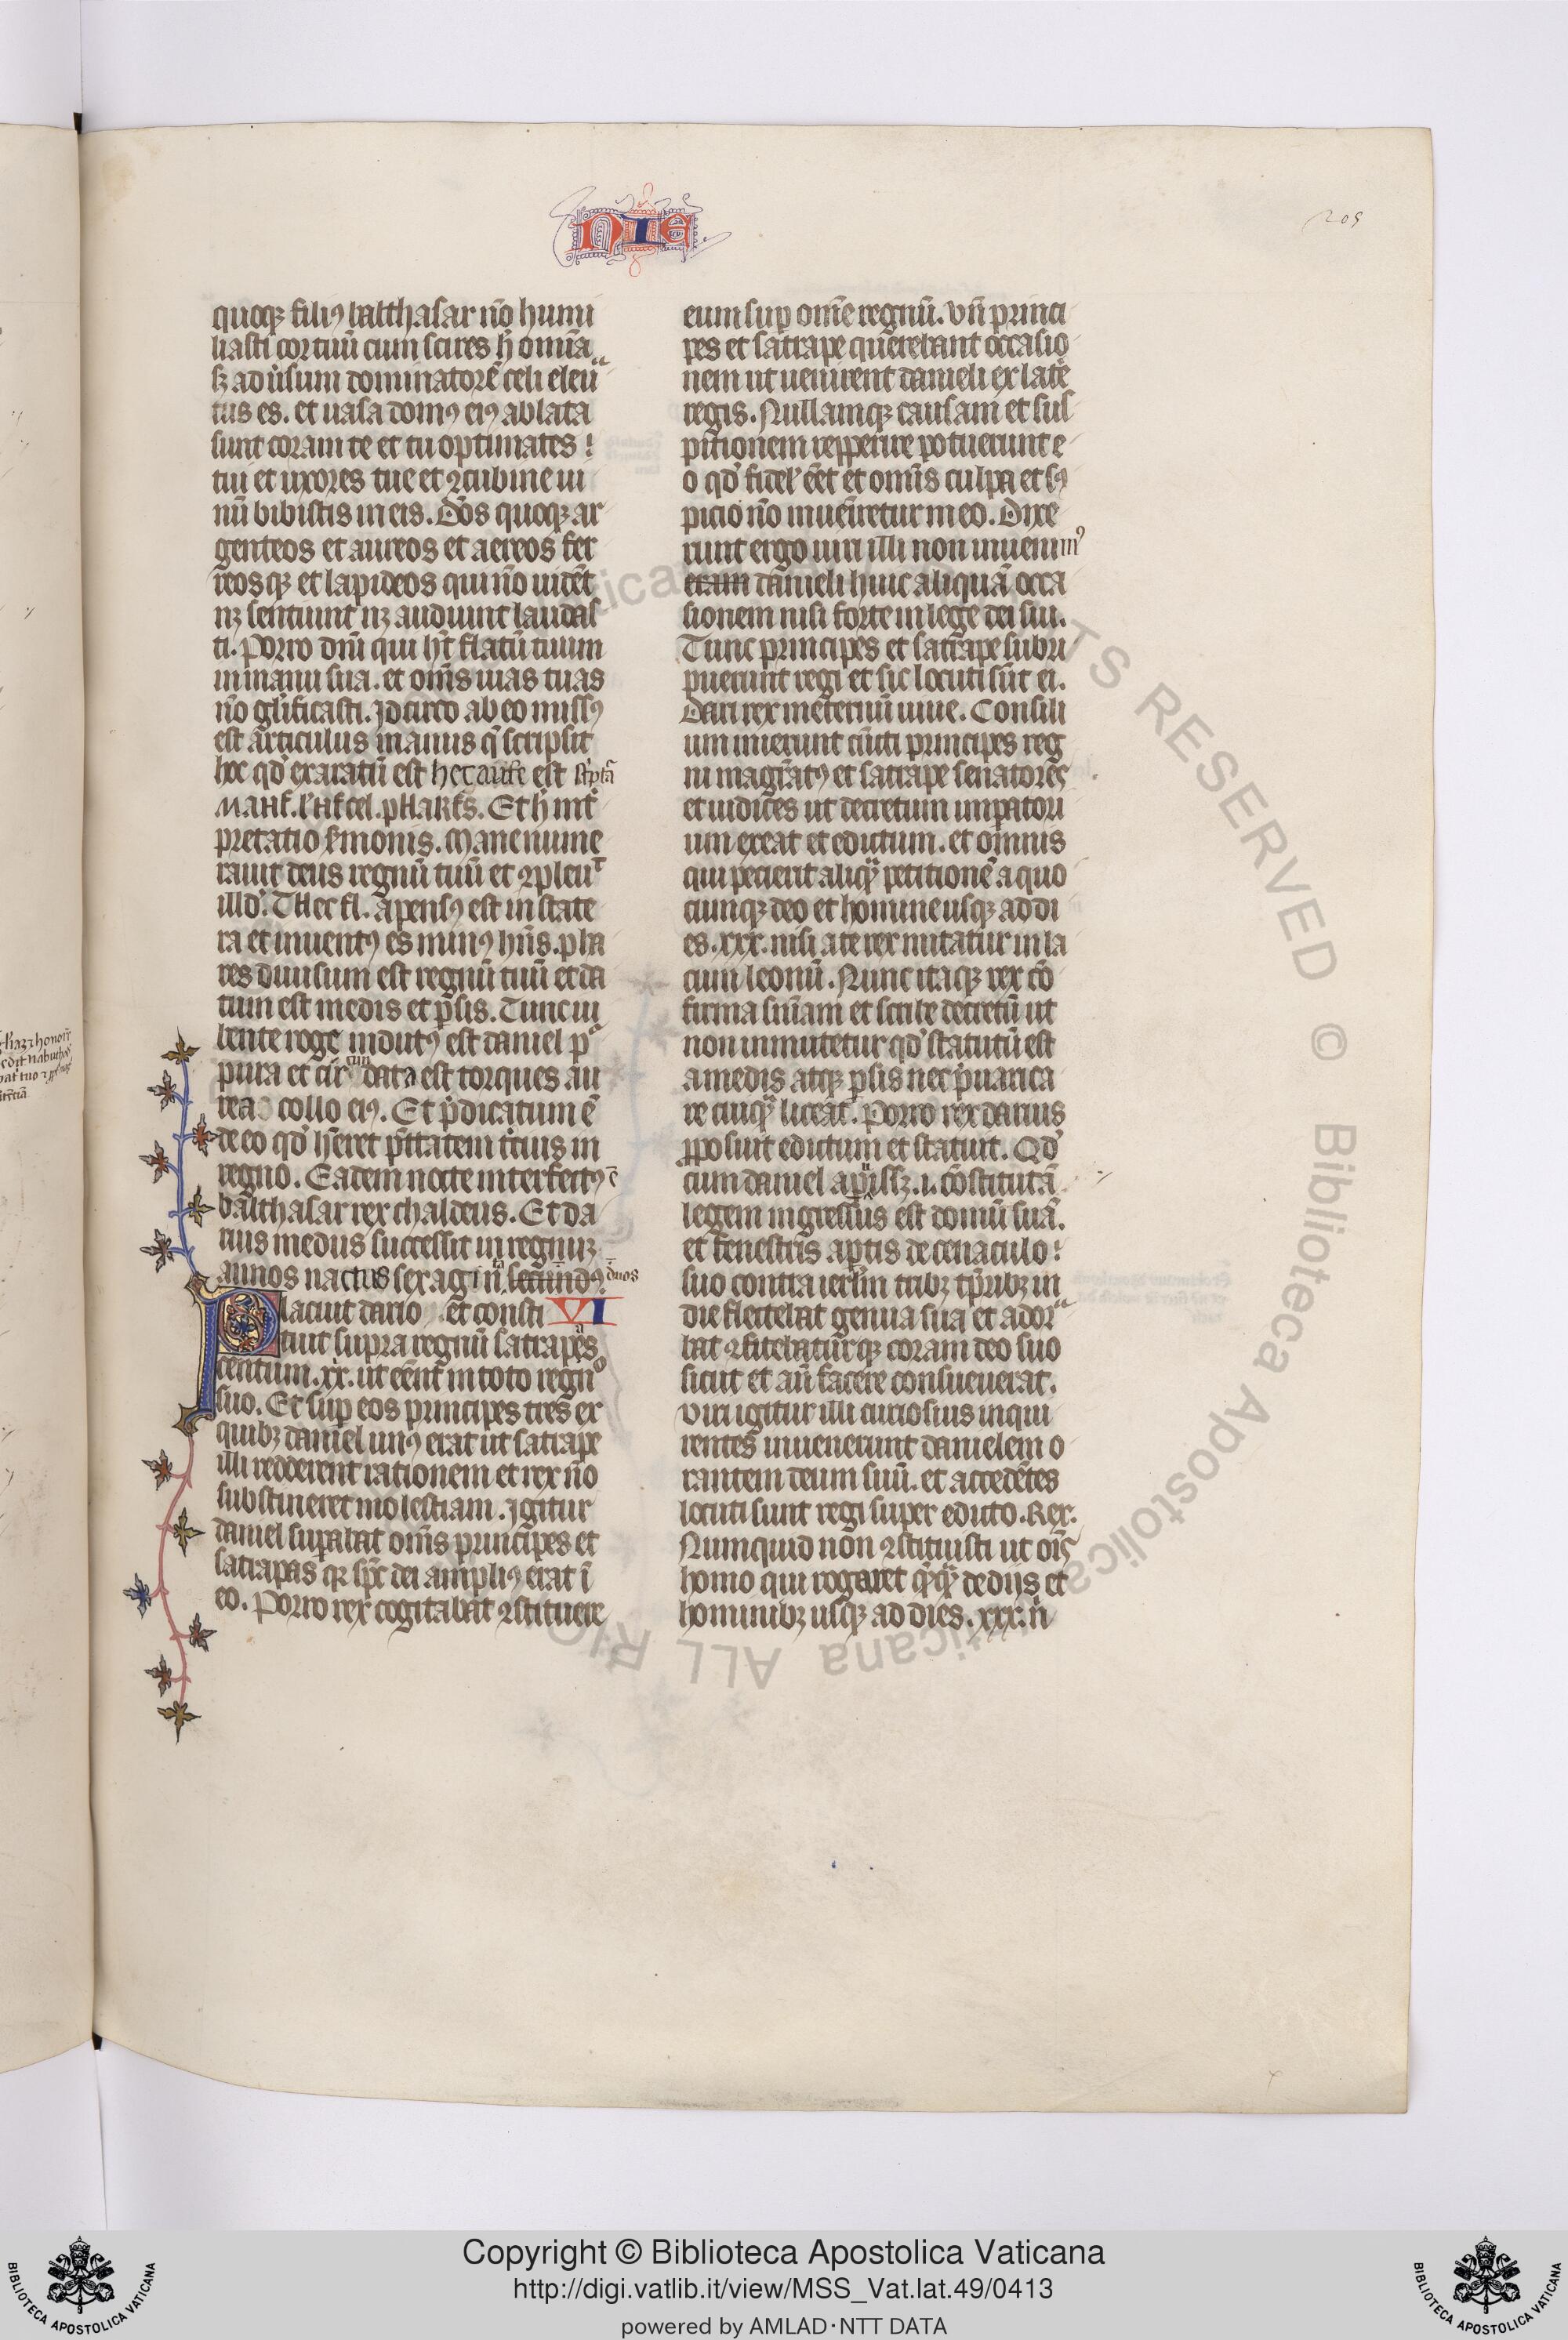 NIE
209
quoqꝫ filiꝰ balthasar nō humi
liasti cor tuū cum scires h̄ omīa
sꝫ adũsum dominatorē celi eleua
tus es. et uasa domꝰ eiꝰ ablata
sunt coram te et tu optimates
tui et uxores tue et ꝯcubine ui
nū bibistis in eis. Deos quoqꝫ ar
genteos et aureos et aereos fer
reosqꝫ et lapideos qui nō uidēt
nqꝫ sentiunt nqꝫ audiunt laudas
ti. Porro dnm̄ qui ht̄ flatū tuum
in manu sua. et om̄s uias tuas
nō glīficasti. Idcirco ab eo missꝰ
est articulus manus q̄ scripsit
hoc qd̓ exaratū est hec aūt est sc͛pta
MANE. THECEL. PHARES. Et h̄ int͛
pretatio ẜmonis. Mane nume
rauit deus regnū tuū et ꝯpleuit
illd̓. THecel. apensꝰ est in state
ra et inuentꝰ es minꝰ hn̄s. pha
res diuisum est regnū tuū et da
tum est medis et ꝑsis. Tunc iu
bente rege indutꝰ est daniel pur
pura et cir cum data est torques au
rea collo eiꝰ. Et p̄dicatum ē
de eo qd̓ hēret ptātem t͛cius in
regno. Eadem nocte interfectꝰ ē
balthasar rex chaldeus. Et da
rius medus successit in regnuꝫ
annos natus sexaginta secundꝰ duos
Placuit dario et consti VI
tuit supra regnū satrapas
centum .xx. ut eēnt in toto regno
suo. Et suꝑ eos principes tres ex
quibꝫ daniel unꝰ erat ut satrape
illi redderent rationem et rex nō
substineret molestiam. Igitur
daniel suꝑabat om̄s principes et
satrapas qꝛ spc̄ dei ampliꝰ erat ī
eo. Porro rex cogitabat ꝯstituere
eum suꝑ om̄e regnū. Vn̄ princi
pes et satrape querebant occasio
nem ut uenirent danieli ex late
regis. Nullamqꝫ causam et sus
pitionem repperire potuerunt e
o qd̓ fidel' eēt et om̄is culpa et sꝰ
picio nō inueniretur in eo. Dixe
runt ergo uiri illi non inuenimꝰ
etam danieli huic aliquā occa
sionem nisi forte in lege dei sui.
Tunc principes et satrape subri
puerunt regi et sic locuti sūt ei.
Dari rex in eternū uiue. Consili
um inierunt cūcti principes reg
ni magratꝰ et satrape senatores
et iudices ut decretum imꝑatori
um exeat et edictum. et omnis
qui petierit aliqͣ petitionē a quo
cumqꝫ deo et homine usqꝫ ad di
es .xxx. nisi a te rex mitatur in la
cum leonū. Nunc itaqꝫ rex cō
firma snīam et scribe decretū ut
non inmutetur qd̓ statutū est
a medis atqꝫ ꝑsis nec p̄uarica
re cuiqͣ liceat. Porro rex darius
ꝓposuit edictum et statuit. Qd̓
cum daniel comꝑissꝫ .i. cōstitutā
legem ingressus est domū suā.
et fenestris aꝑtis de cenaculo
suo contra ierlm̄ tribꝫ tꝑribꝫ in
die flectebat genua sua et adora
bat ꝯfitebaturqꝫ coram deo suo
sicut et an̄ facere consueuerat.
Viri igitur illi curiosius inqui
rentes inuenerunt danielem o
rantem deum suū. et accedētes
locuti sunt regi super edicto. Rex.
Numquid non ꝯstituisti ut oīs
homo qui rogaret qͣqͣ de dijs et
hominibꝫ usqꝫ ad dies .xxx. n̄
Copyright © Biblioteca Apostolica Vaticana
http://digi.vatlib.it/view/MSS_Vat.lat.49/0413
powered by AMLAD·NTT DATA
BIBLIOTECA APOSTOLICA VATICANA
BIBLIOTECA APOSTOLICA VATICANA